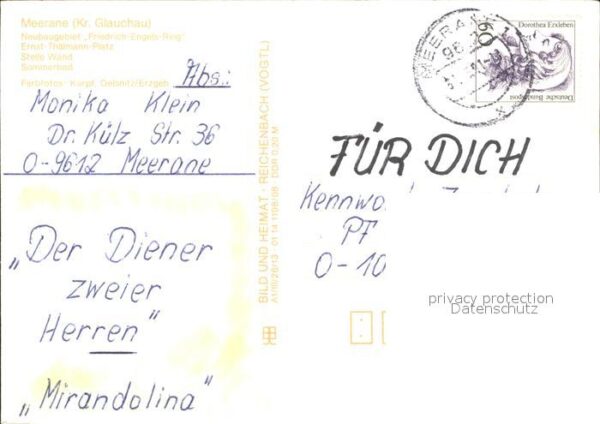 Meerane (Kr. Glauchau)
Neubaugebiet „Friedrich-Engels-Ring"
Ernst-Thälmann-Platz
Steile Wand
Sommerbad
Farbfotos: Karpf, Gebnitz/Erzgeb.
Abs:
Monika Klein
Dr. Külz Str. 36
O-9612 Meerane
„Der Diener
zweier
Herren"
„Mirandolina"
BILD UND HEIMAT · REICHENBACH (VOGTL)
MEERANE
Dorothea Erxleben
60
Deutsche Bundespost
FÜR DICH
PF
O-10
privacy protection
Datenschutz